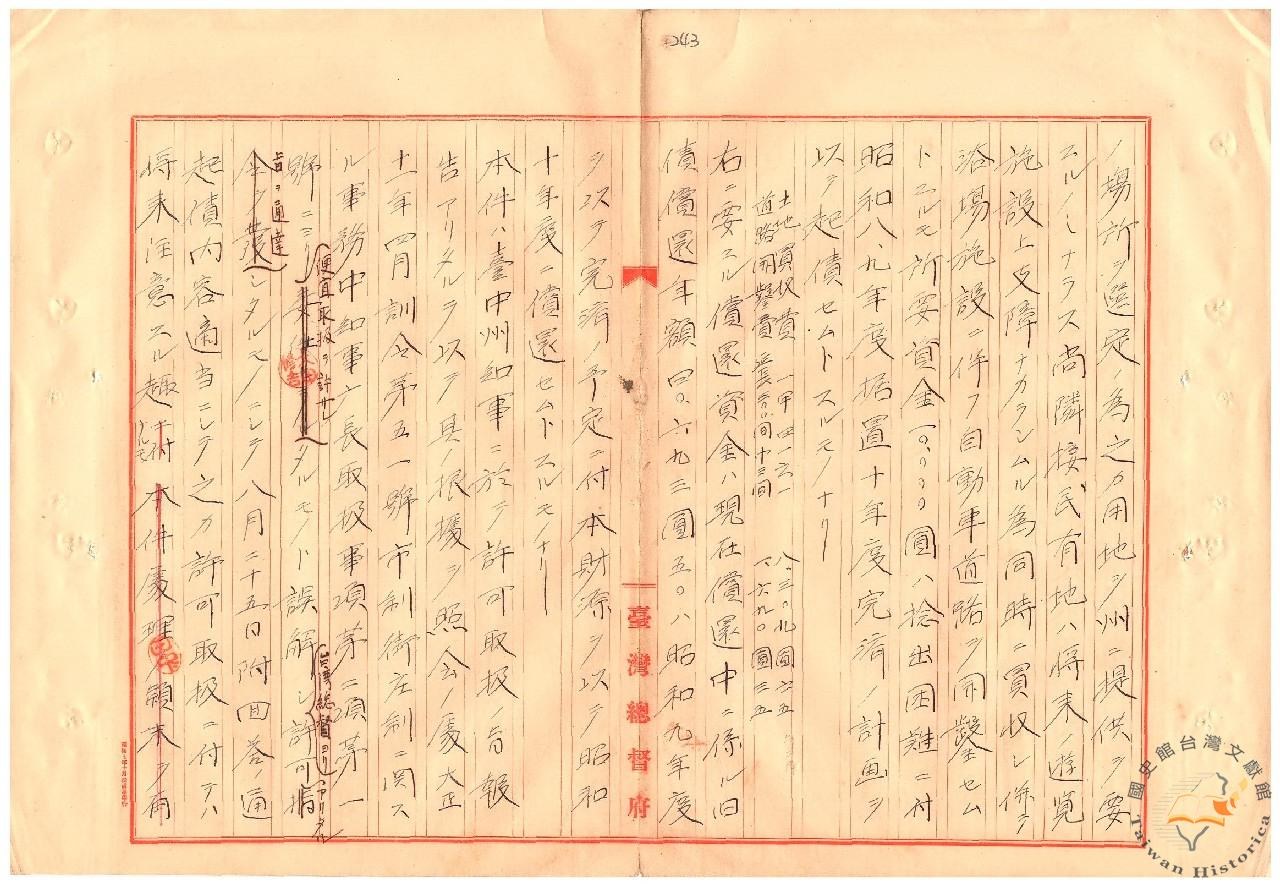 243
ノ場所ヲ選定ノ為之カ用地ヲ州ニ提供ヲ要
スルノミナラス尚隣接民有地ハ将来ノ遊覧
施設上支障ナカラシムル為同時ニ買収シ併テ
浴場施設ニ伴フ自動車道路ヲ開鑿セム
トスルモ所要資金一〇、〇〇〇圓ハ捻出困難ニ付
昭和八、九年度据置十年度完済ノ計画ヲ
以テ起債セムトスルモノナリ
土地買収費 一甲四一六一 八、三〇九圓六五
道路開鑿費 間十三間 一、六九〇圓三五
右ニ要スル償還資金ハ現在償還中ニ係ル旧
債償還年額四〇、六九三圓五〇ハ昭和九年度
ヲ以テ完済ノ予定ニ付本財源ヲ以テ昭和
十年度ニ償還セムトスルモノナリ
本件ハ臺中州知事ニ於テ許可取扱ノ旨報
告アリタルヲ以テ其ノ根據ヲ照会ノ處大正
十一年四月訓令第五一號市制街庄制ニ関ス
ル事務中知事廳長取扱事項第二項第一
號ニヨリ便宜取扱ヲ許サレタルモノト誤解シ許可指
令ヲ發シタルモノニシテ八月二十五日附回答ノ通
旨ヲ通達
臺灣總督ヨリアリタル
起債内容適当ニシテ之カ許可取扱ニ付テハ
将来注意スル趣ニ付本件處理顛末ヲ具
臺灣總督府
國史館台灣文獻館
Taiwan Historica